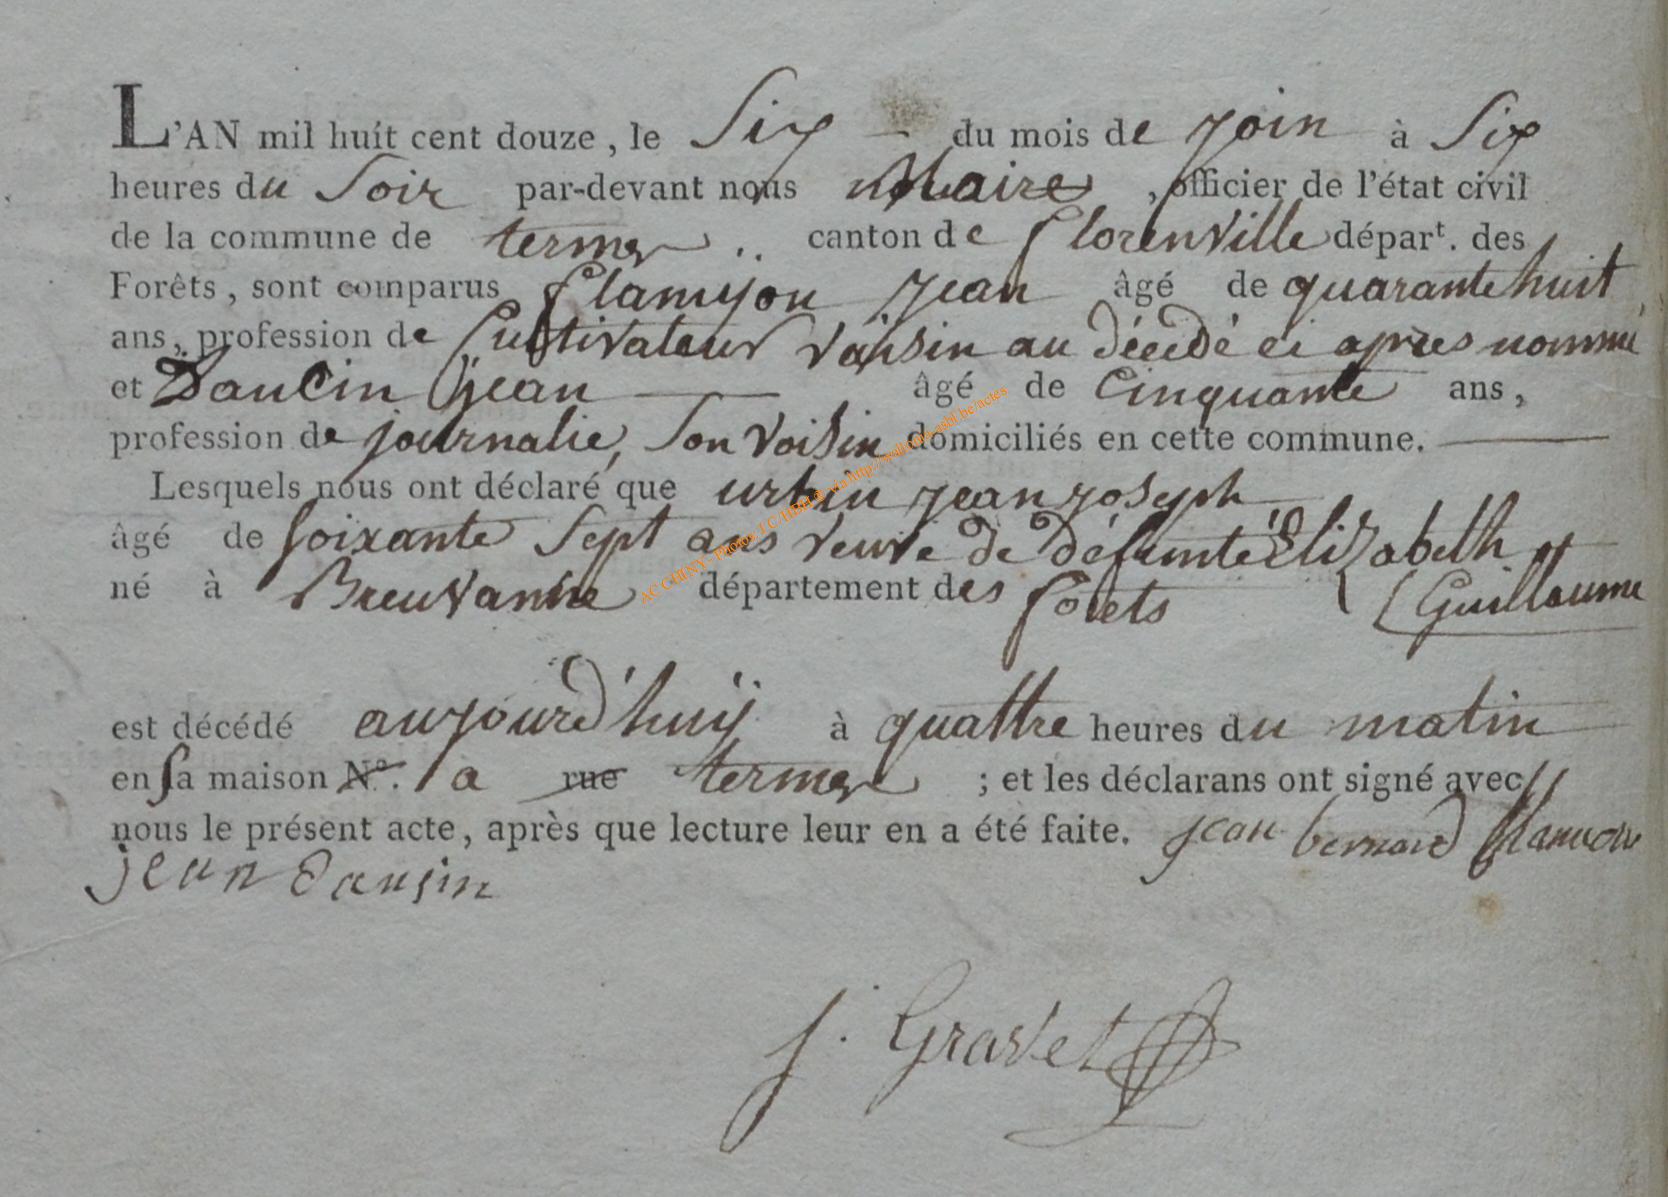 L'AN mil huit cent douze, le Six du mois de join à Six
heures du Soir par-devant nous Maire, officier de l'état civil
de la commune de termes canton de florenville départ. des
Forêts, sont comparus flamyon jean âgé de quarante huit
ans, profession de Cultivateur voisin au décédé ci apres nommé
et DauCin jean âgé de Cinquante ans,
profession de journalie, Son voisin domiciliés en cette commune.
Lesquels nous ont déclaré que urbin jean joseph
âgé de soixante Sept ans veuve de défunte Elizabeth
Guillaume
né à Breuvanne département des forets
est décédé aujourd'huÿ à quattre heures du matin
en sa maison N°. a rue termes ; et les déclarans ont signé avec
nous le présent acte, après que lecture leur en a été faite. jean bernard
jean dausin
j. Gravet
AC CHINY - Photos J.C. via asbl.be/actes